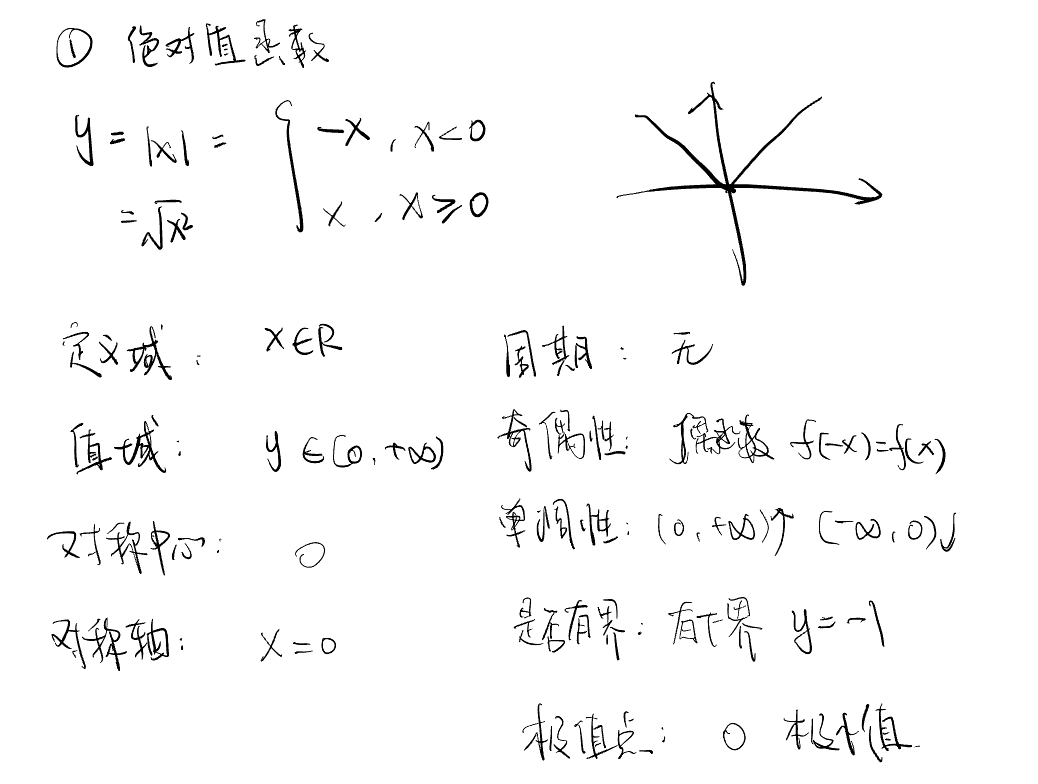 ① 绝对值函数
y = |x| = { -x , x<0
= √x² x , x≥0
定义域: x∈R
值域: y∈[0,+∞)
对称中心: 0
对称轴: x=0
周期: 无
奇偶性: 偶函数 f(-x)=f(x)
单调性: (0,+∞)↑ (-∞,0)↓
是否有界: 有下界 y=-1
极值点: 0 极小值